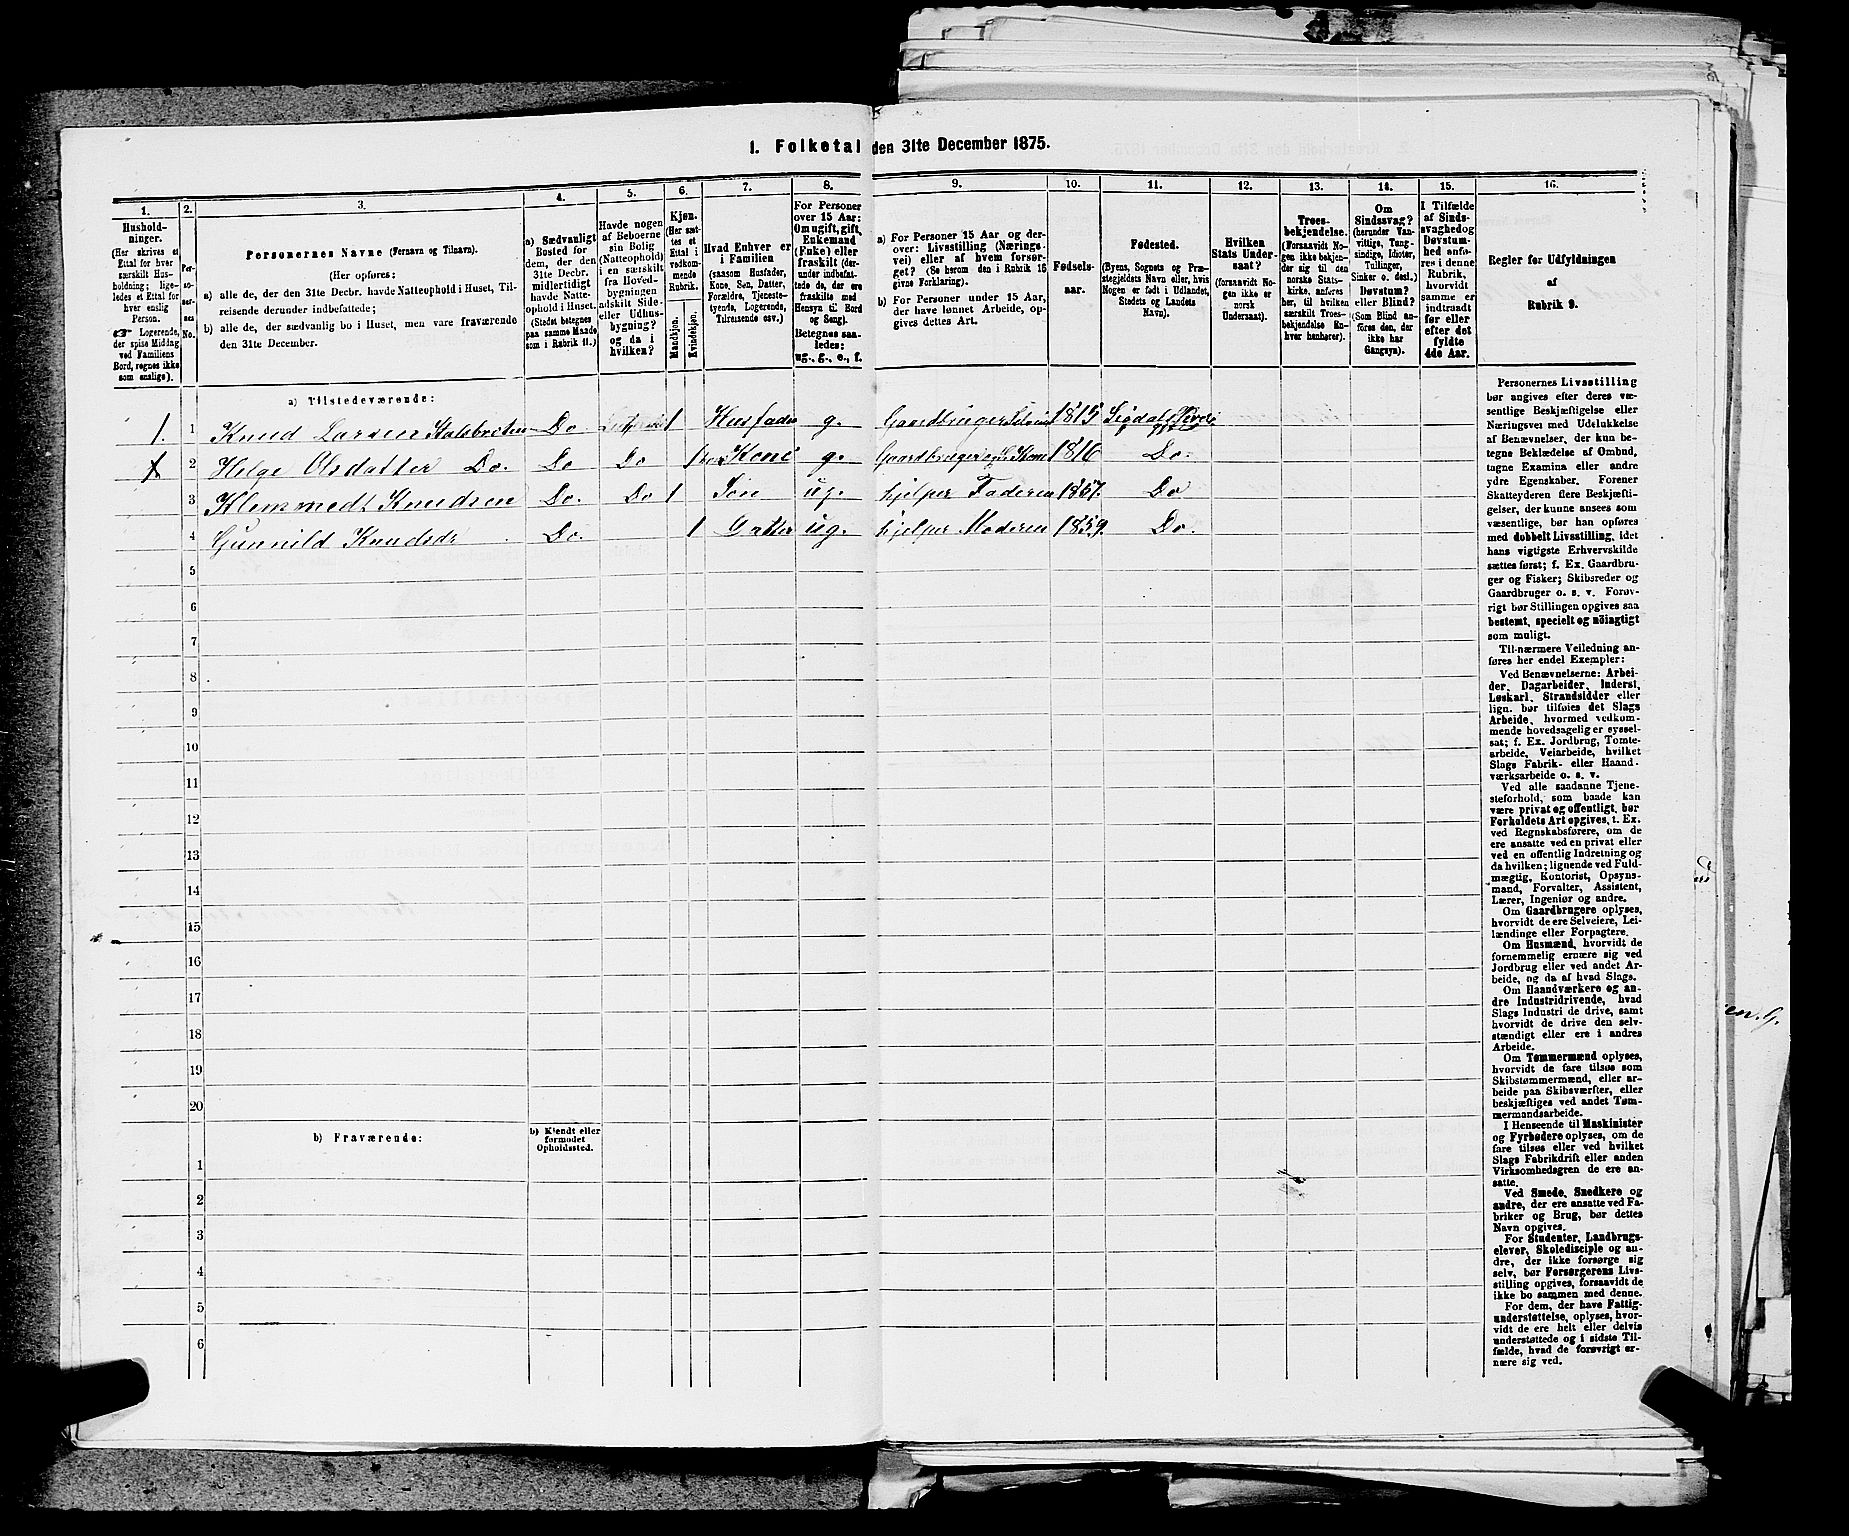 1. Folketal den 31te December 1875.
1.
2.
3.
4.
5.
6.
7.
8.
9.
10.
11.
12.
13.
14.
15.
16.
Hushold-
ninger.
(Her skrives et
Ettal for hver
særskilt Hus-
holdning; lige-
ledes et Ettal for
hver enslig
Person.
☞ Logerende,
der spise Middag
ved Familiens
Bord, regnes ikke
som enslige).
Per-
so-
ner-
nes
No.
Personernes Navne (Fornavn og Tilnavn).
(Her opføres:
a) alle de, der den 31te Decbr. havde Natteophold i Huset, Til-
reisende derunder indbefattede;
b) alle de, der sædvanlig bo i Huset, men vare fraværende
den 31te December.
a) Sædvanligt
Bosted for
dem, der den
31te Decbr.
midlertidigt
havde Natte-
ophold i Huset.
(Stedet betegnes
paa samme Maade
som i Rubrik 11.)
Havde nogen
af Beboerne
sin Bolig
(Natteophold)
i en særskilt
fra Hoved-
bygningen
adskilt Side-
eller Udhus-
bygning?
og da i
hvilken?
Kjøn.
(Her sæt-
tes et
Ettal i
vedkom-
mende
Rubrik.
Mandkjøn.
Kvindekjøn.
Hvad Enhver er
i Familien
(saasom Husfader,
Kone, Søn, Datter,
Forældre, Tjeneste-
tyende, Logerende,
Tilreisende osv.)
For Personer
over 15 Aar:
Om ugift, gift,
Enkemand
(Enke) eller
fraskilt (der-
under indbefat-
tede de, der
ere fraskilte med
Hensyn til Bord
og Seng).
Betegnes saa-
ledes:
ug., g., e., f.
a) For Personer 15 Aar og der-
over: Livsstilling (Nærings-
vei) eller af hvem forsør-
get? (Se herom den i Rubrik 16
givne Forklaring).
b) For Personer under 15 Aar,
der have lønnet Arbeide, op-
gives dettes Art.
Fødsels-
aar.
Fødested.
(Byens, Sognets og Præ-
stegjeldets Navn eller, hvis
Nogen er født i Udlandet,
Stedets og Landets
Navn).
Hvilken
Stats Under-
saat?
(forsaavidt No-
gen ikke er
norsk
Undersaat).
Troes-
bekjendelse.
(Forsaavidt No-
gen ikke bekjen-
der sig til den
norske Stats-
kirke, anføres
her, til hvilken
særskilt Troes-
bekjendelse En-
hver henhører).
Om
Sindssvag?
(herunder Van-
vittige, Tung-
sindige, Idioter,
Tullinger,
Sinker o. desl.)
Døvstum?
eller Blind?
(Som Blind an-
føres den, der
ikke har
Gangsyn).
I Tilfælde
af Sinds-
svaghed og
Døvstum-
hed anfø-
res i denne
Rubrik,
hvorvidt
samme er
indtraadt
før eller
efter det
fyldte
4de Aar.
Regler for Udfyldningen
af
Rubrik 9.
a) Tilstedeværende:
1. 1 Knud Larsen Do 1 Husfader g. Gaardbruger Selveier 1815 Sigdal
1 2 Helge Olsdatter Do. Do Do 1 Kone g. Gaardbruger Kone 1816 Do.
3 Klemmedt Knudsen Do. Do 1 Søn ug. hjelper Faderen 1857. Do
4 Gunnild Knudsdr Do. 1 Datter ug. hjelper Moderen 1859. Do.
5
6
7
8
9
10
11
12
13
14
15
16
17
18
19
20
b) Fraværende:
b) Kjendt eller
formodet
Opholdssted.
1
2
3
4
5
6
Personernes Livsstilling
bør angives efter deres væ-
sentlige Beskjæftigelse eller
Næringsvei med Udelukkelse
af Benævnelser, der kun be-
tegne Beklædelse af Ombud,
tagne Examina eller andre
ydre Egenskaber. Forener
Skatteyderen flere Beskjæfti-
gelser, der kunne ansees som
væsentlige, bør han opføres
med dobbelt Livsstilling, idet
hans vigtigste Erhvervskilde
sættes først; f. Ex. Gaardbru-
ger og Fisker; Skibsreder og
Gaardbruger o. s. v. Forøv-
rigt bør Stillingen opgives saa
bestemt, specielt og nøiagtigt
som muligt.
Til nærmere Veiledning an-
føres her endel Exempler:
Ved Benævnelserne: Arbei-
der, Dagarbeider, Inderst,
Løskarl, Strandsidder eller
lign. bør tilføies det Slags
Arbeide, hvormed vedkom-
mende hovedsagelig er syssel-
sat; f. Ex. Jordbrug, Tomte-
arbeide, Veiarbeide, hvilket
Slags Fabrik- eller Haand-
værksarbeide o. s. v.
Ved alle saadanne Tjene-
steforhold, som baade kan
være privat og offentligt, bør
Forholdets Art opgives, t. Ex.
ved Regnskabsførere, om de
ere ansatte ved en privat eller
ved en offentlig Indretning og
da hvilken; lignende ved Fuld-
mægtig, Kontorist, Opsyns-
mand, Forvalter, Assistent,
Lærer, Ingeniør og andre.
Om Gaardbrugere oplyses,
hvorvidt de ere Selveiere, Lei-
lændinge eller Forpagtere.
Om Husmænd, hvorvidt de
fornemmelig ernære sig ved
Jordbrug eller ved andet Ar-
beide, og da af hvad Slags.
Om Haandværkere og an-
dre Industridrivende, hvad
Slags Industri de drive, samt
hvorvidt de drive den selv-
stændigt eller ere i andres
Arbeide.
Om Tømmermænd oplyses,
hvorvidt de fare tilsøs som
Skibstømmermænd, eller ar-
beide paa Skibsværfter, eller
beskjæftiges ved andet Tøm-
mermandsarbeide.
I Henseende til Maskinister
og Fyrbødere oplyses, om de
fare tilsøs eller ved hvilket
Slags Fabrikdrift eller anden
Virksomhedsgren de ere an-
satte.
Ved Smede, Snedkere og
andre, der ere ansatte ved Fa-
briker og Brug, bør dettes
Navn opgives.
For Studenter, Landbrugs-
elever, Skoledisciple og an-
dre, der ikke forsørge sig
selv, bør Forsørgerens Livs-
stilling opgives, forsaavidt de
ikke bo sammen med denne.
For dem, der have Fattig-
understøttelse, oplyses, hvor-
vidt de ere helt eller delvis
understøttede og i sidste Til-
fælde, hvad de forøvrigt er-
nære sig ved.